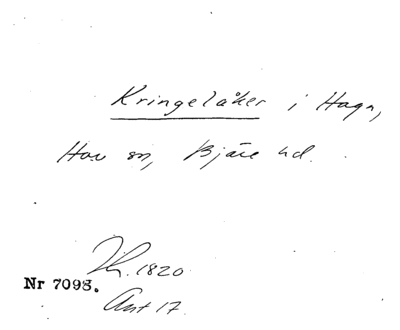 Kringelåker i Haga,
Hov sn, Bjäre hd.
Lk. 1820
Nr 7098.
Avt 17.